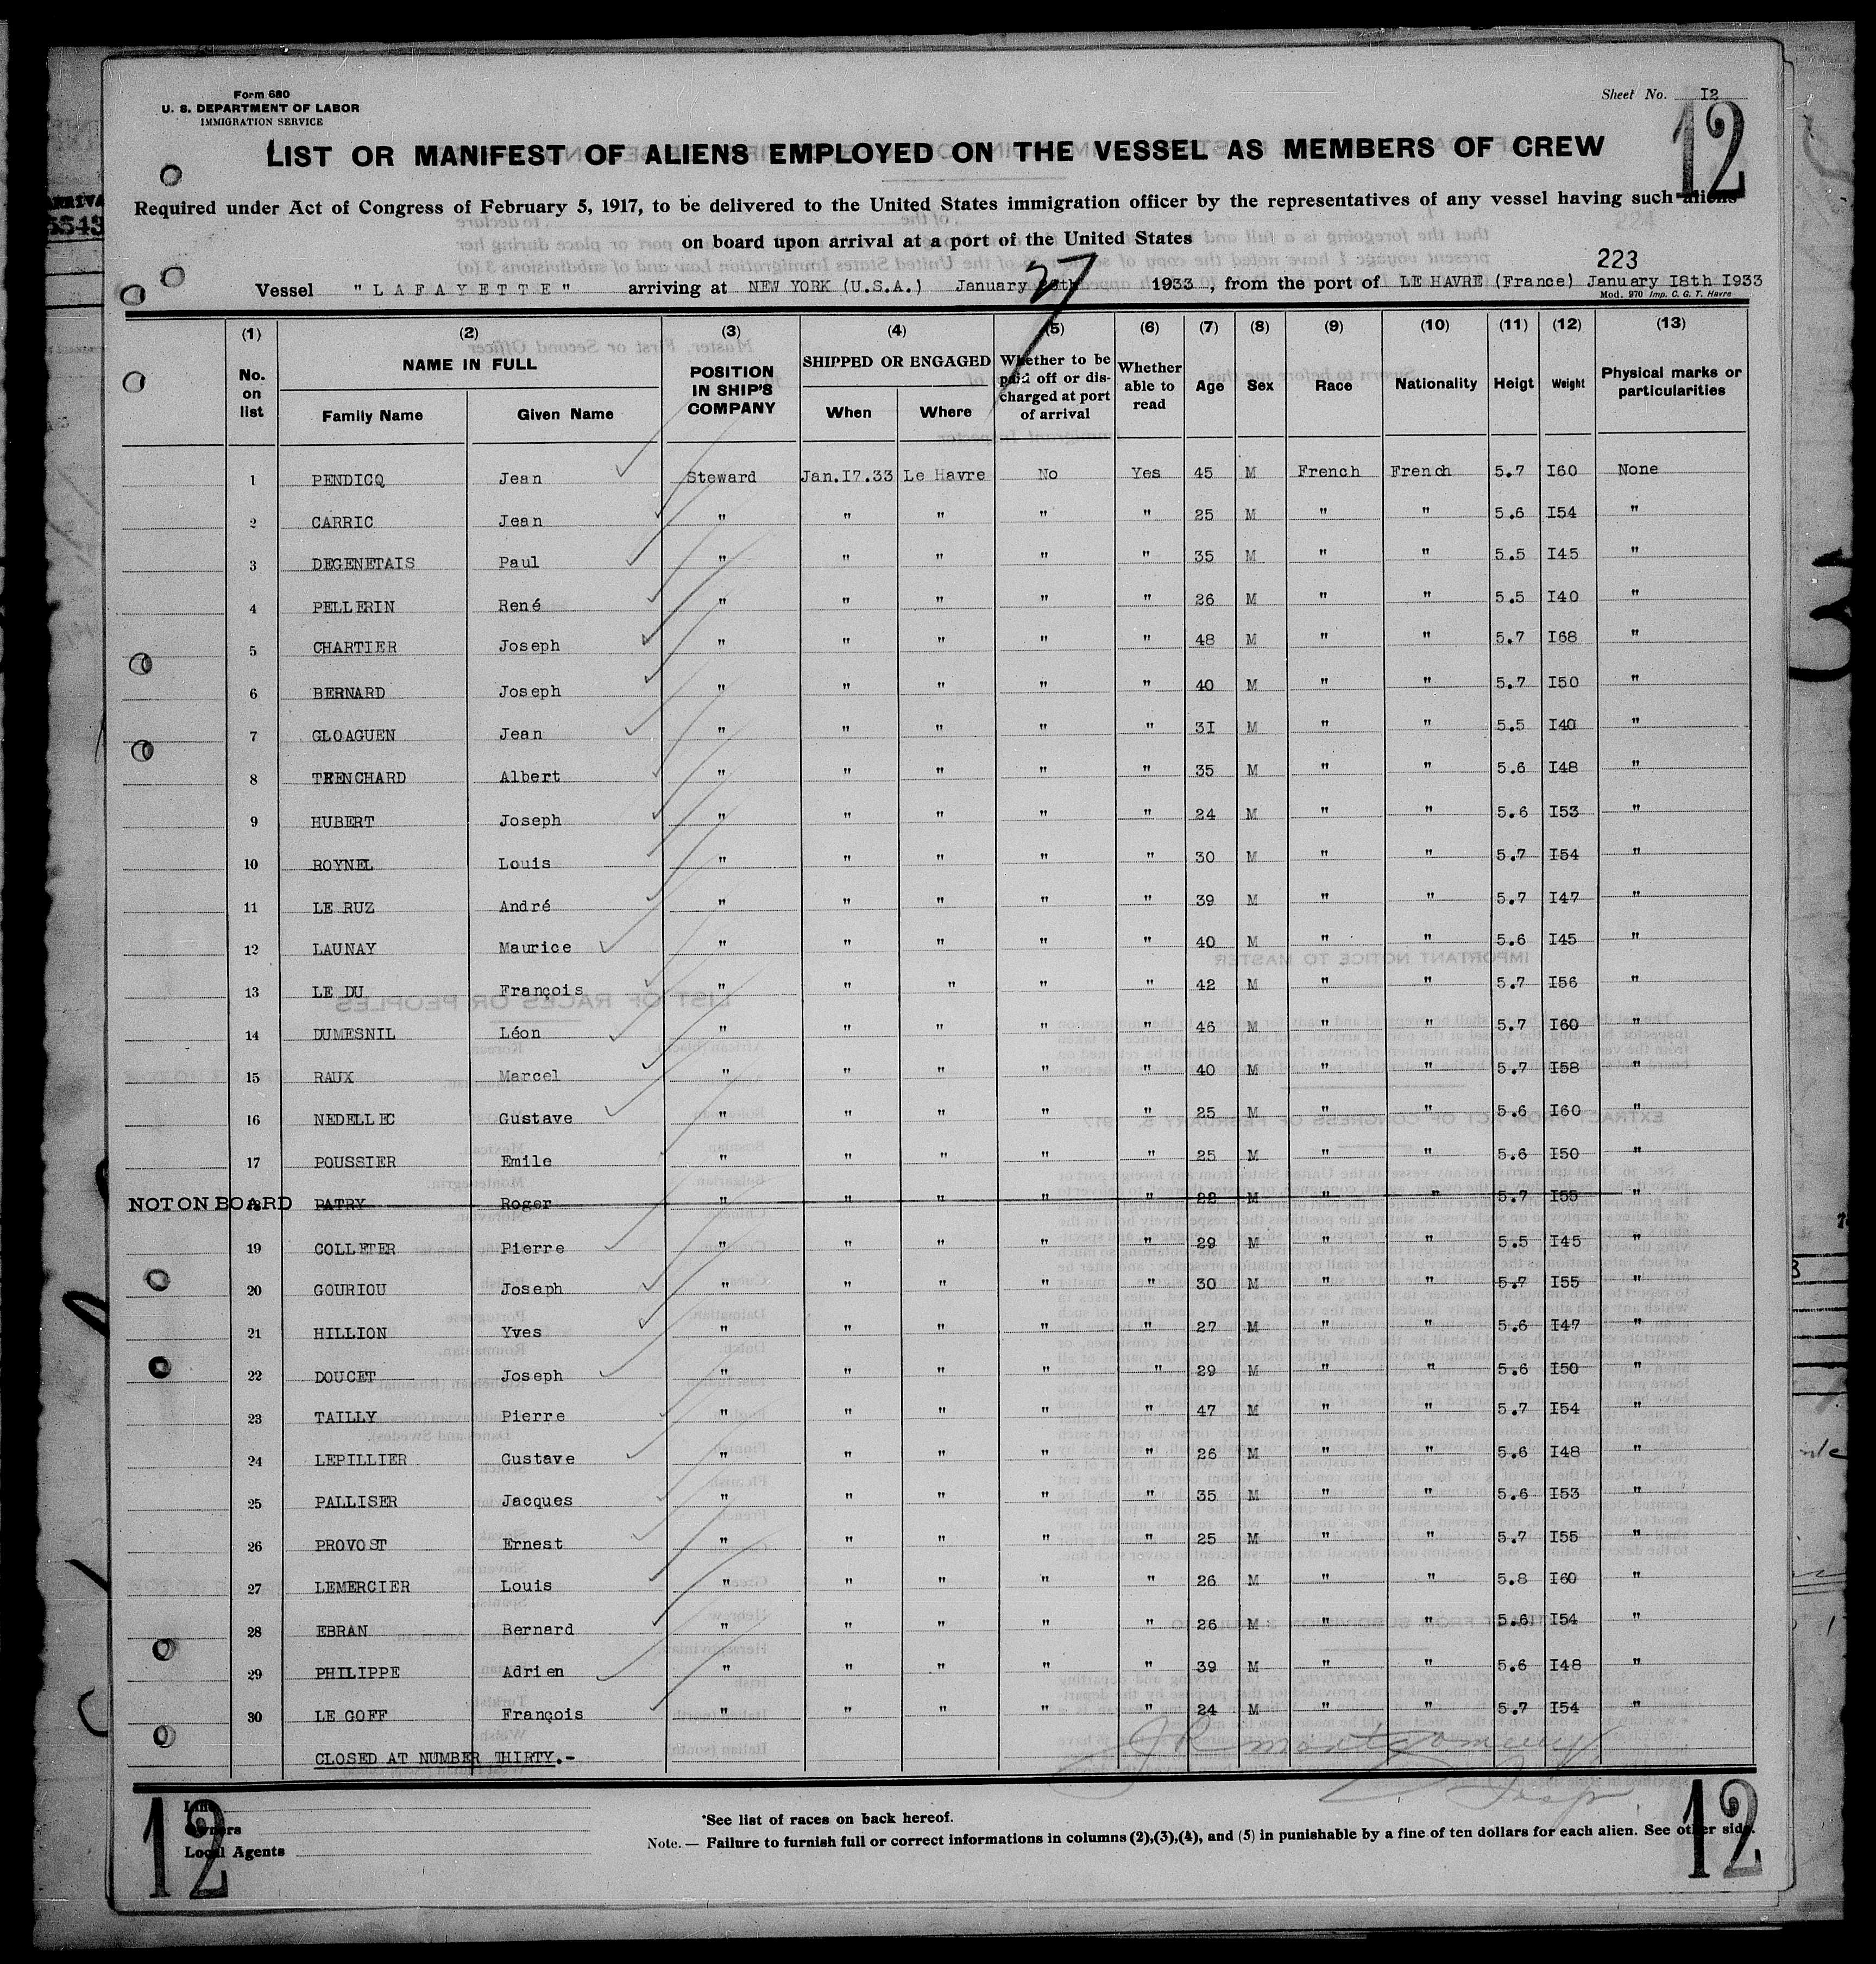 Form 680
U. S. DEPARTMENT OF LABOR
IMMIGRATION SERVICE
Sheet No. I2
12
LIST OR MANIFEST OF ALIENS EMPLOYED ON THE VESSEL AS MEMBERS OF CREW
Required under Act of Congress of February 5, 1917, to be delivered to the United States immigration officer by the representatives of any vessel having such aliens
on board upon arrival at a port of the United States
223
27
Vessel " L A F A Y E T T E " arriving at NEW YORK (U.S.A.) January 1933 , from the port of LE HAVRE (France) January I8th I933
Mod. 970 Imp. C. G. T. Havre
(1) (2) (3) (4) (5) (6) (7) (8) (9) (10) (11) (12) (13)
No. on list NAME IN FULL POSITION IN SHIP'S COMPANY SHIPPED OR ENGAGED Whether to be paid off or discharged at port of arrival Whether able to read Age Sex Race Nationality Heigt Weight Physical marks or particularities
Family Name Given Name When Where
1 PENDICQ Jean Steward Jan.I7.33 Le Havre No Yes 45 M French French 5.7 I60 None
2 CARRIC Jean " " " " " 25 M " " 5.6 I54 "
3 DEGENETAIS Paul " " " " " 35 M " " 5.5 I45 "
4 PELLERIN René " " " " " 26 M " " 5.5 I40 "
5 CHARTIER Joseph " " " " " 48 M " " 5.7 I68 "
6 BERNARD Joseph " " " " " 40 M " " 5.7 I50 "
7 GLOAGUEN Jean " " " " " 3I M " " 5.5 I40 "
8 TRENCHARD Albert " " " " " 35 M " " 5.6 I48 "
9 HUBERT Joseph " " " " " 24 M " " 5.6 I53 "
10 ROYNEL Louis " " " " " 30 M " " 5.7 I54 "
11 LE RUZ André " " " " " 39 M " " 5.7 I47 "
12 LAUNAY Maurice " " " " " 40 M " " 5.6 I45 "
13 LE DU François " " " " " 42 M " " 5.7 I56 "
14 DUMESNIL Léon " " " " " 46 M " " 5.7 I60 "
15 RAUX Marcel " " " " " 40 M " " 5.7 I58 "
16 NEDELLEC Gustave " " " " " 25 M " " 5.6 I60 "
17 POUSSIER Emile " " " " " 25 M " " 5.6 I50 "
NOT ON BOARD 18 PATRY Roger " " " " " 22 M " " 5.7 I55 "
19 COLLETER Pierre " " " " " 29 M " " 5.5 I45 "
20 GOURIOU Joseph " " " " " 30 M " " 5.7 I55 "
21 HILLION Yves " " " " " 27 M " " 5.6 I47 "
22 DOUCET Joseph " " " " " 29 M " " 5.6 I50 "
23 TAILLY Pierre " " " " " 47 M " " 5.7 I54 "
24 LEPILLIER Gustave " " " " " 26 M " " 5.6 I48 "
25 PALLISER Jacques " " " " " 35 M " " 5.6 I53 "
26 PROVOST Ernest " " " " " 25 M " " 5.7 I55 "
27 LEMERCIER Louis " " " " " 26 M " " 5.8 I60 "
28 EBRAN Bernard " " " " " 26 M " " 5.6 I54 "
29 PHILIPPE Adrien " " " " " 39 M " " 5.6 I48 "
30 LE GOFF François " " " " " 24 M " " 5.7 I54 "
CLOSED AT NUMBER THIRTY.-
12 12
Owners
Local Agents
*See list of races on back hereof.
Note. — Failure to furnish full or correct informations in columns (2),(3),(4), and (5) in punishable by a fine of ten dollars for each alien. See other side.